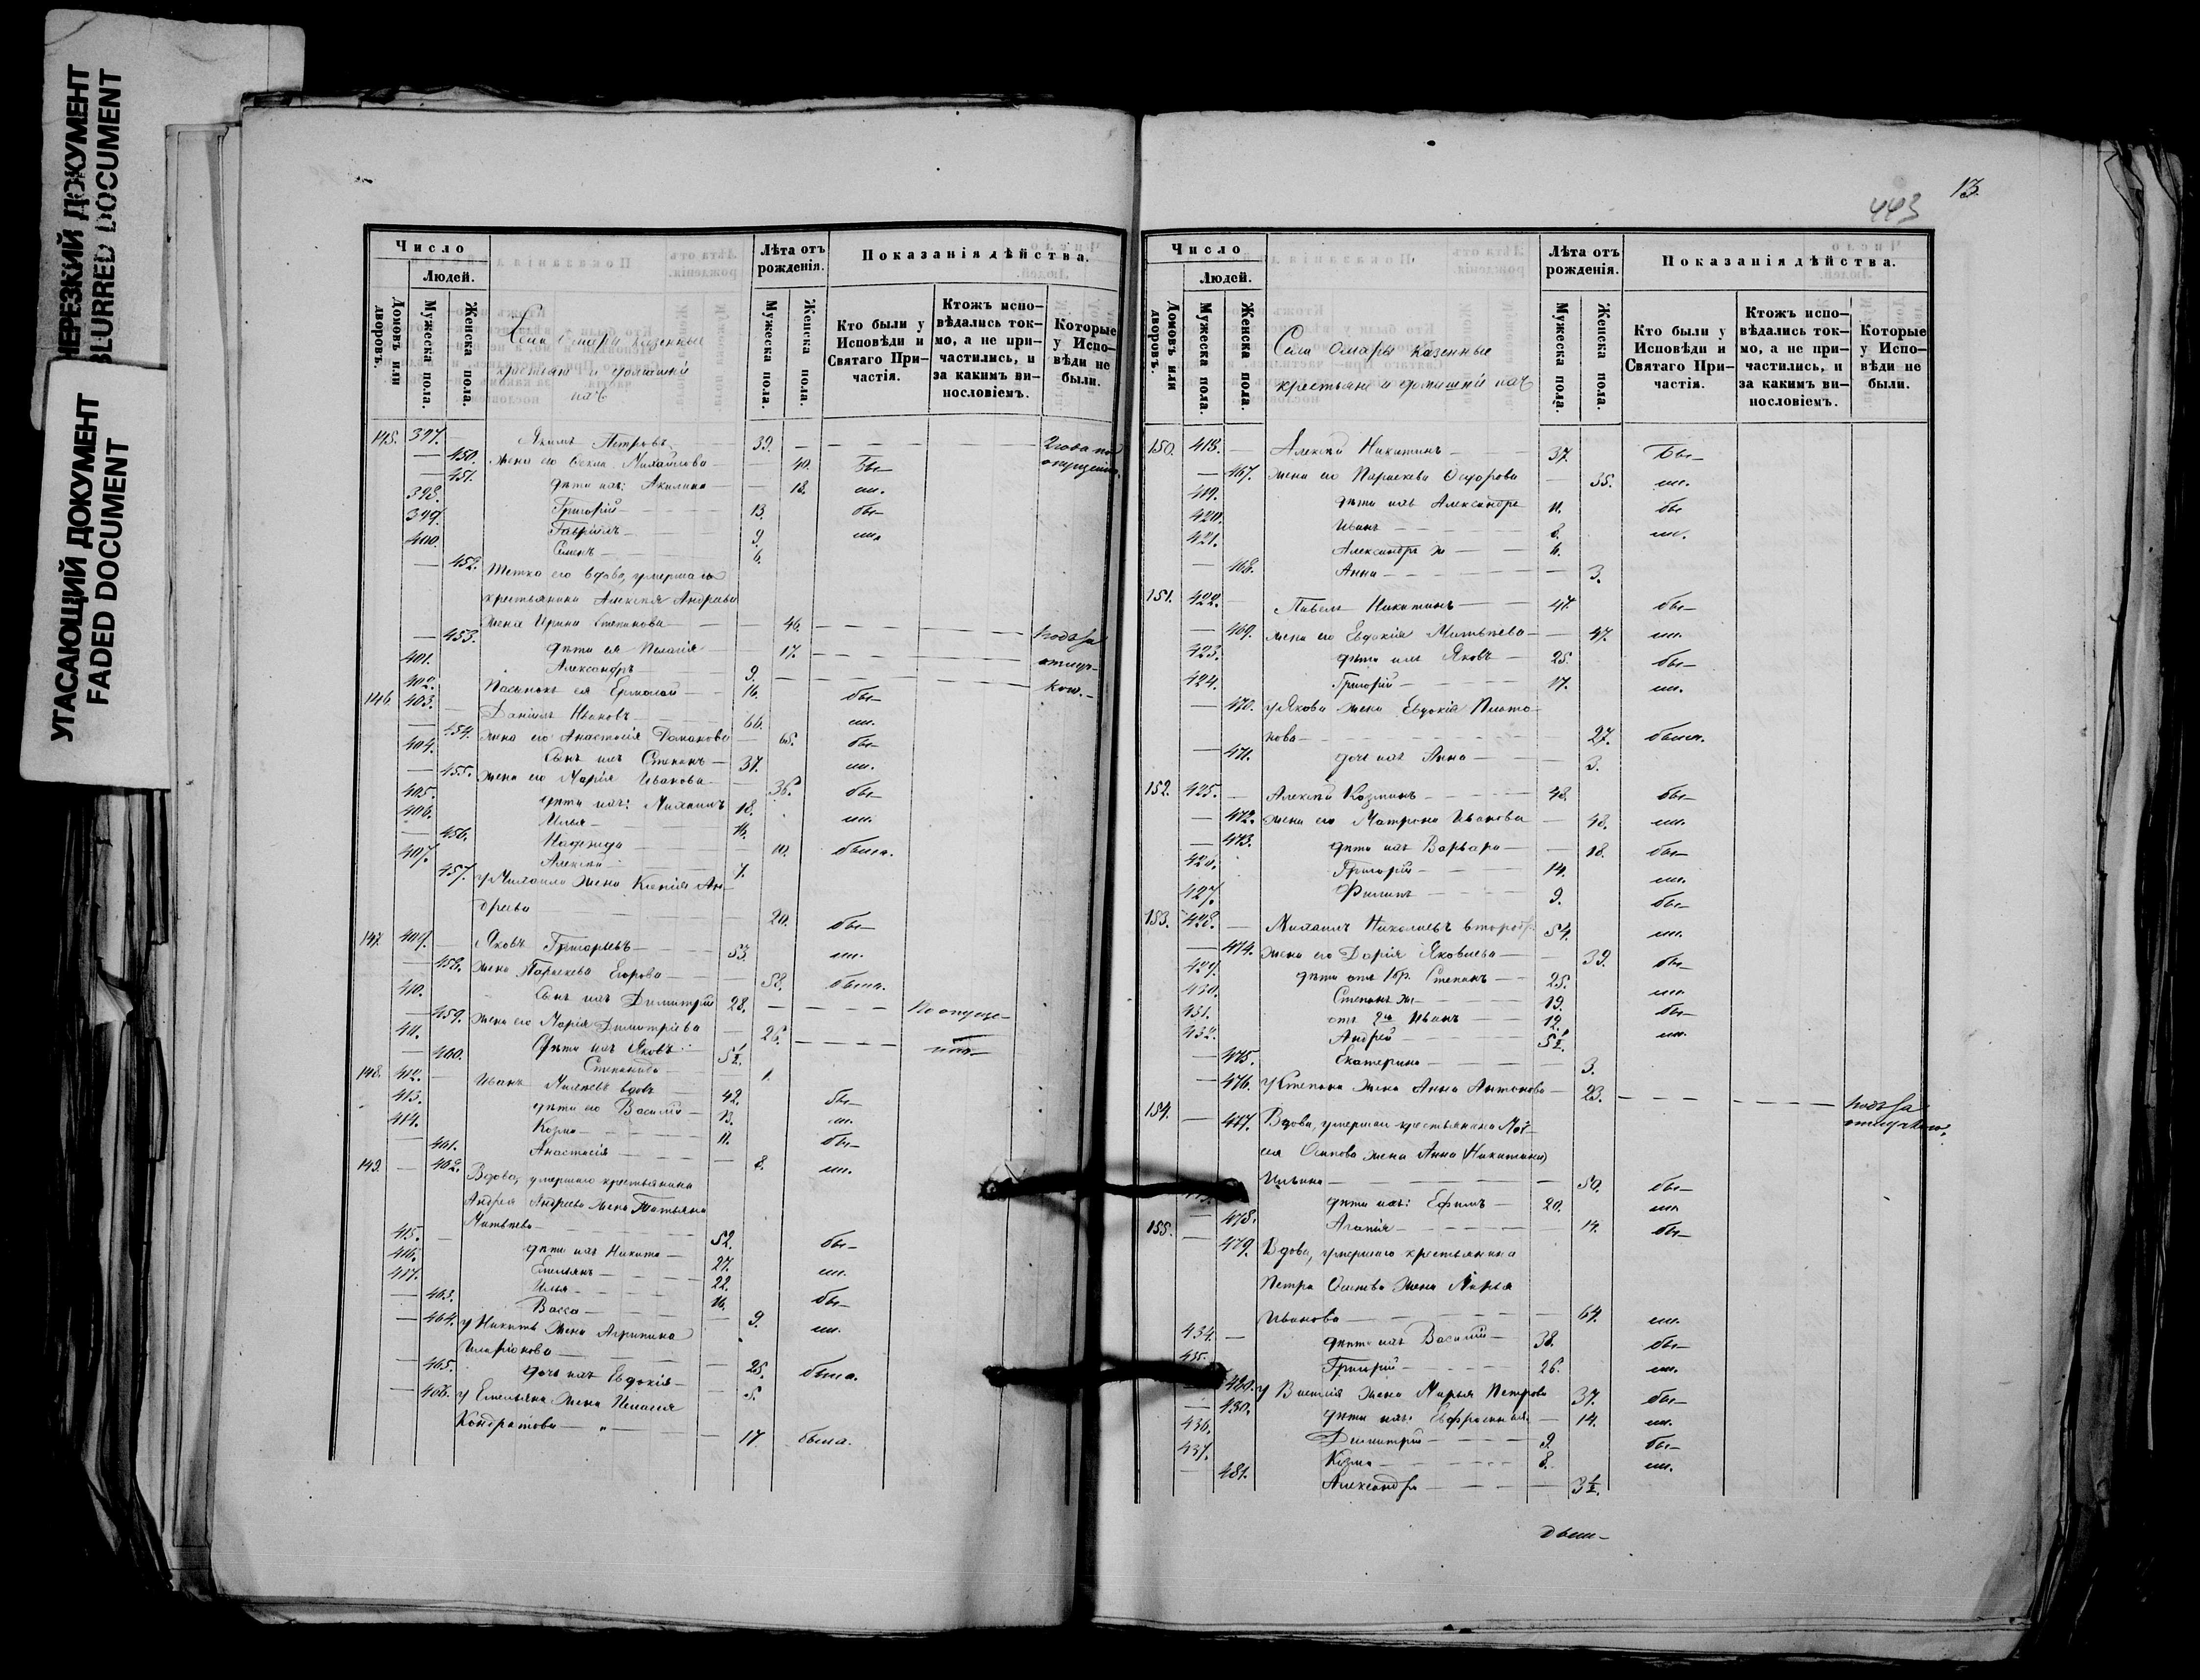 НЕРЕЗКИЙ ДОКУМЕНТ
BLURRED DOCUMENT
УГАСАЮЩИЙ ДОКУМЕНТ
FADED DOCUMENT
Число
Людей.
Домовъ или дворовъ.
Мужеска пола.
Женска пола.
Лѣта отъ рожденія.
Мужеска пола.
Женска пола.
Показанія дѣйства.
Кто были у Исповѣди и Святаго Причастія.
Ктожъ исповѣдались токмо, а не причастились, и за какимъ винословіемъ.
Которые у Исповѣди не были.
145. 397. Якимъ Петровъ 39.
450. Жена его Михайлова 40. бы-
451. дѣти ихъ: Акилина 18. ли.
398. Григорій 13. бы-
399. Гавріилъ 9. ли.
400. 6.
452. Тетка его вдова, умершаго
крестьянина Алексѣя Андреева
жена Ирина Степанова 46.
453. дѣти ея Пелагія 17.
401. Александръ 9.
402. Пасынокъ ея Ермолай 16. бы-
146. 403. Даніилъ Ивановъ 66. ли.
454. Жена его Анастасія 65. бы-
404. Сынъ ихъ Степанъ 37. ли.
455. Жена его Марія Иванова 36. бы-
405. дѣти ихъ: Михаилъ 18. ли.
406. Илья
456. Надежда 10. была.
407. Алексѣй 7.
457. у Михаила жена Ксенія Ан-
дреева 20. бы-
147. 409. Яковъ Григорьевъ 53. ли.
458. Жена Параскева Егорова 58. была.
410. Сынъ ихъ Димитрій 28. По опуще-
459. Жена его Марія Димитріева 26.
411. Дѣти ихъ Яковъ
460. Степанида 1.
148. 412. Иванъ вдовъ 42. бы-
413. дѣти его Василій 13. ли.
414. Козма 11. бы-
461. Анастасія 8. ли.
149. 462. Вдова, умершаго крестьянина
Андрея Андреева жена Татьяна
Матвѣева 52. бы-
415. дѣти ихъ Никита 27. ли.
416. Емельянъ 22. бы-
417. Илья 16. ли.
463. Васса 9.
464. у Никиты жена Агрипина
Иларіонова 25. была.
465. дочь ихъ Евдокія 5.
466. у Емельяна жена Пелагея
Кондратова 17. была.
13.
443
Число
Людей.
Домовъ или дворовъ.
Мужеска пола.
Женска пола.
Села Омары казенные
крестьяне и домашніи ихъ
Лѣта отъ рожденія.
Мужеска пола.
Женска пола.
Показанія дѣйства.
Кто были у Исповѣди и Святаго Причастія.
Ктожъ исповѣдались токмо, а не причастились, и за какимъ винословіемъ.
Которые у Исповѣди не были.
150. 418. Алексѣй Никитинъ 37. бы-
467. жена его Параскева Ѳедорова 35. ли.
419. дѣти ихъ Александръ 11. бы-
420. Иванъ 8. ли.
421. Александръ 6.
468. Анна 3.
151. 422. Павелъ Никитинъ 47. бы-
469. жена его Евдокія Матвѣева 47. ли.
423. дѣти ихъ Яковъ 25. бы-
424. Григорій 17. ли.
470. у Якова жена Евдокія Плато-
нова 27. были.
471. дочь ихъ Анна 3.
152. 425. Алексѣй Козминъ 48. бы-
472. жена его Матрона Иванова 48. ли.
473. дѣти ихъ Варвара 18. бы-
426. Григорій 14. ли.
427. Филипъ 9. бы-
153. 428. Михаилъ Николаевъ 54. ли.
474. жена его Дарія Яковлева 39. бы-
429. дѣти отъ Степанъ 25. ли.
430. Степанъ 19. бы-
431. отъ Иванъ 12. ли.
432. Андрей
475. Екатерина 3.
476. у Степана жена Анна Антонова 23.
154. 477. Вдова, умершаго крестьянина Мой-
сея Осипова жена Анна (Никитина)
Ильина 50. бы-
дѣти ихъ: Ефимъ 20. ли.
478. Агапія 14. бы-
155. 479. Вдова, умершаго крестьянина
Петра жена Марья
Иванова 64. ли.
434. дѣти ихъ Василій 38. бы-
435. Григорій 26. ли.
480. у Василія жена Марья Петрова 37. бы-
430. дѣти ихъ: 14. ли.
436. Димитрій 9. бы-
437. Козма 8. ли.
481. Александра 3½.